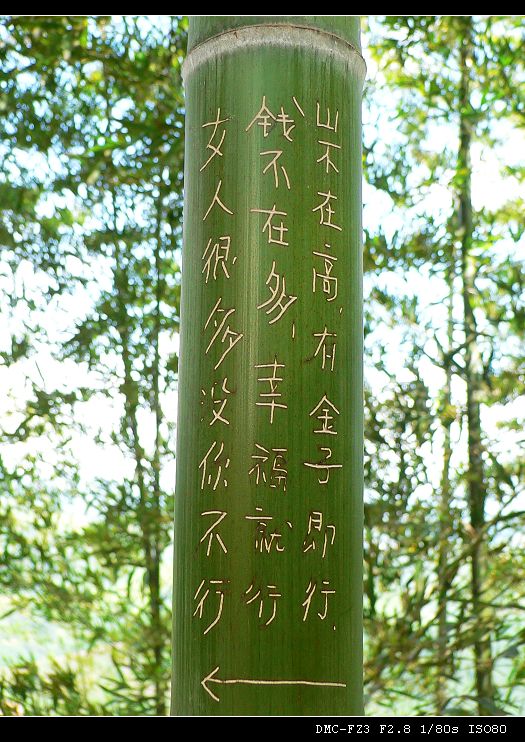 山不在高,有金子即行.
钱不在多,幸福就行
女人很多没你不行
DMC-FZ3 F2.8 1/80s ISO80